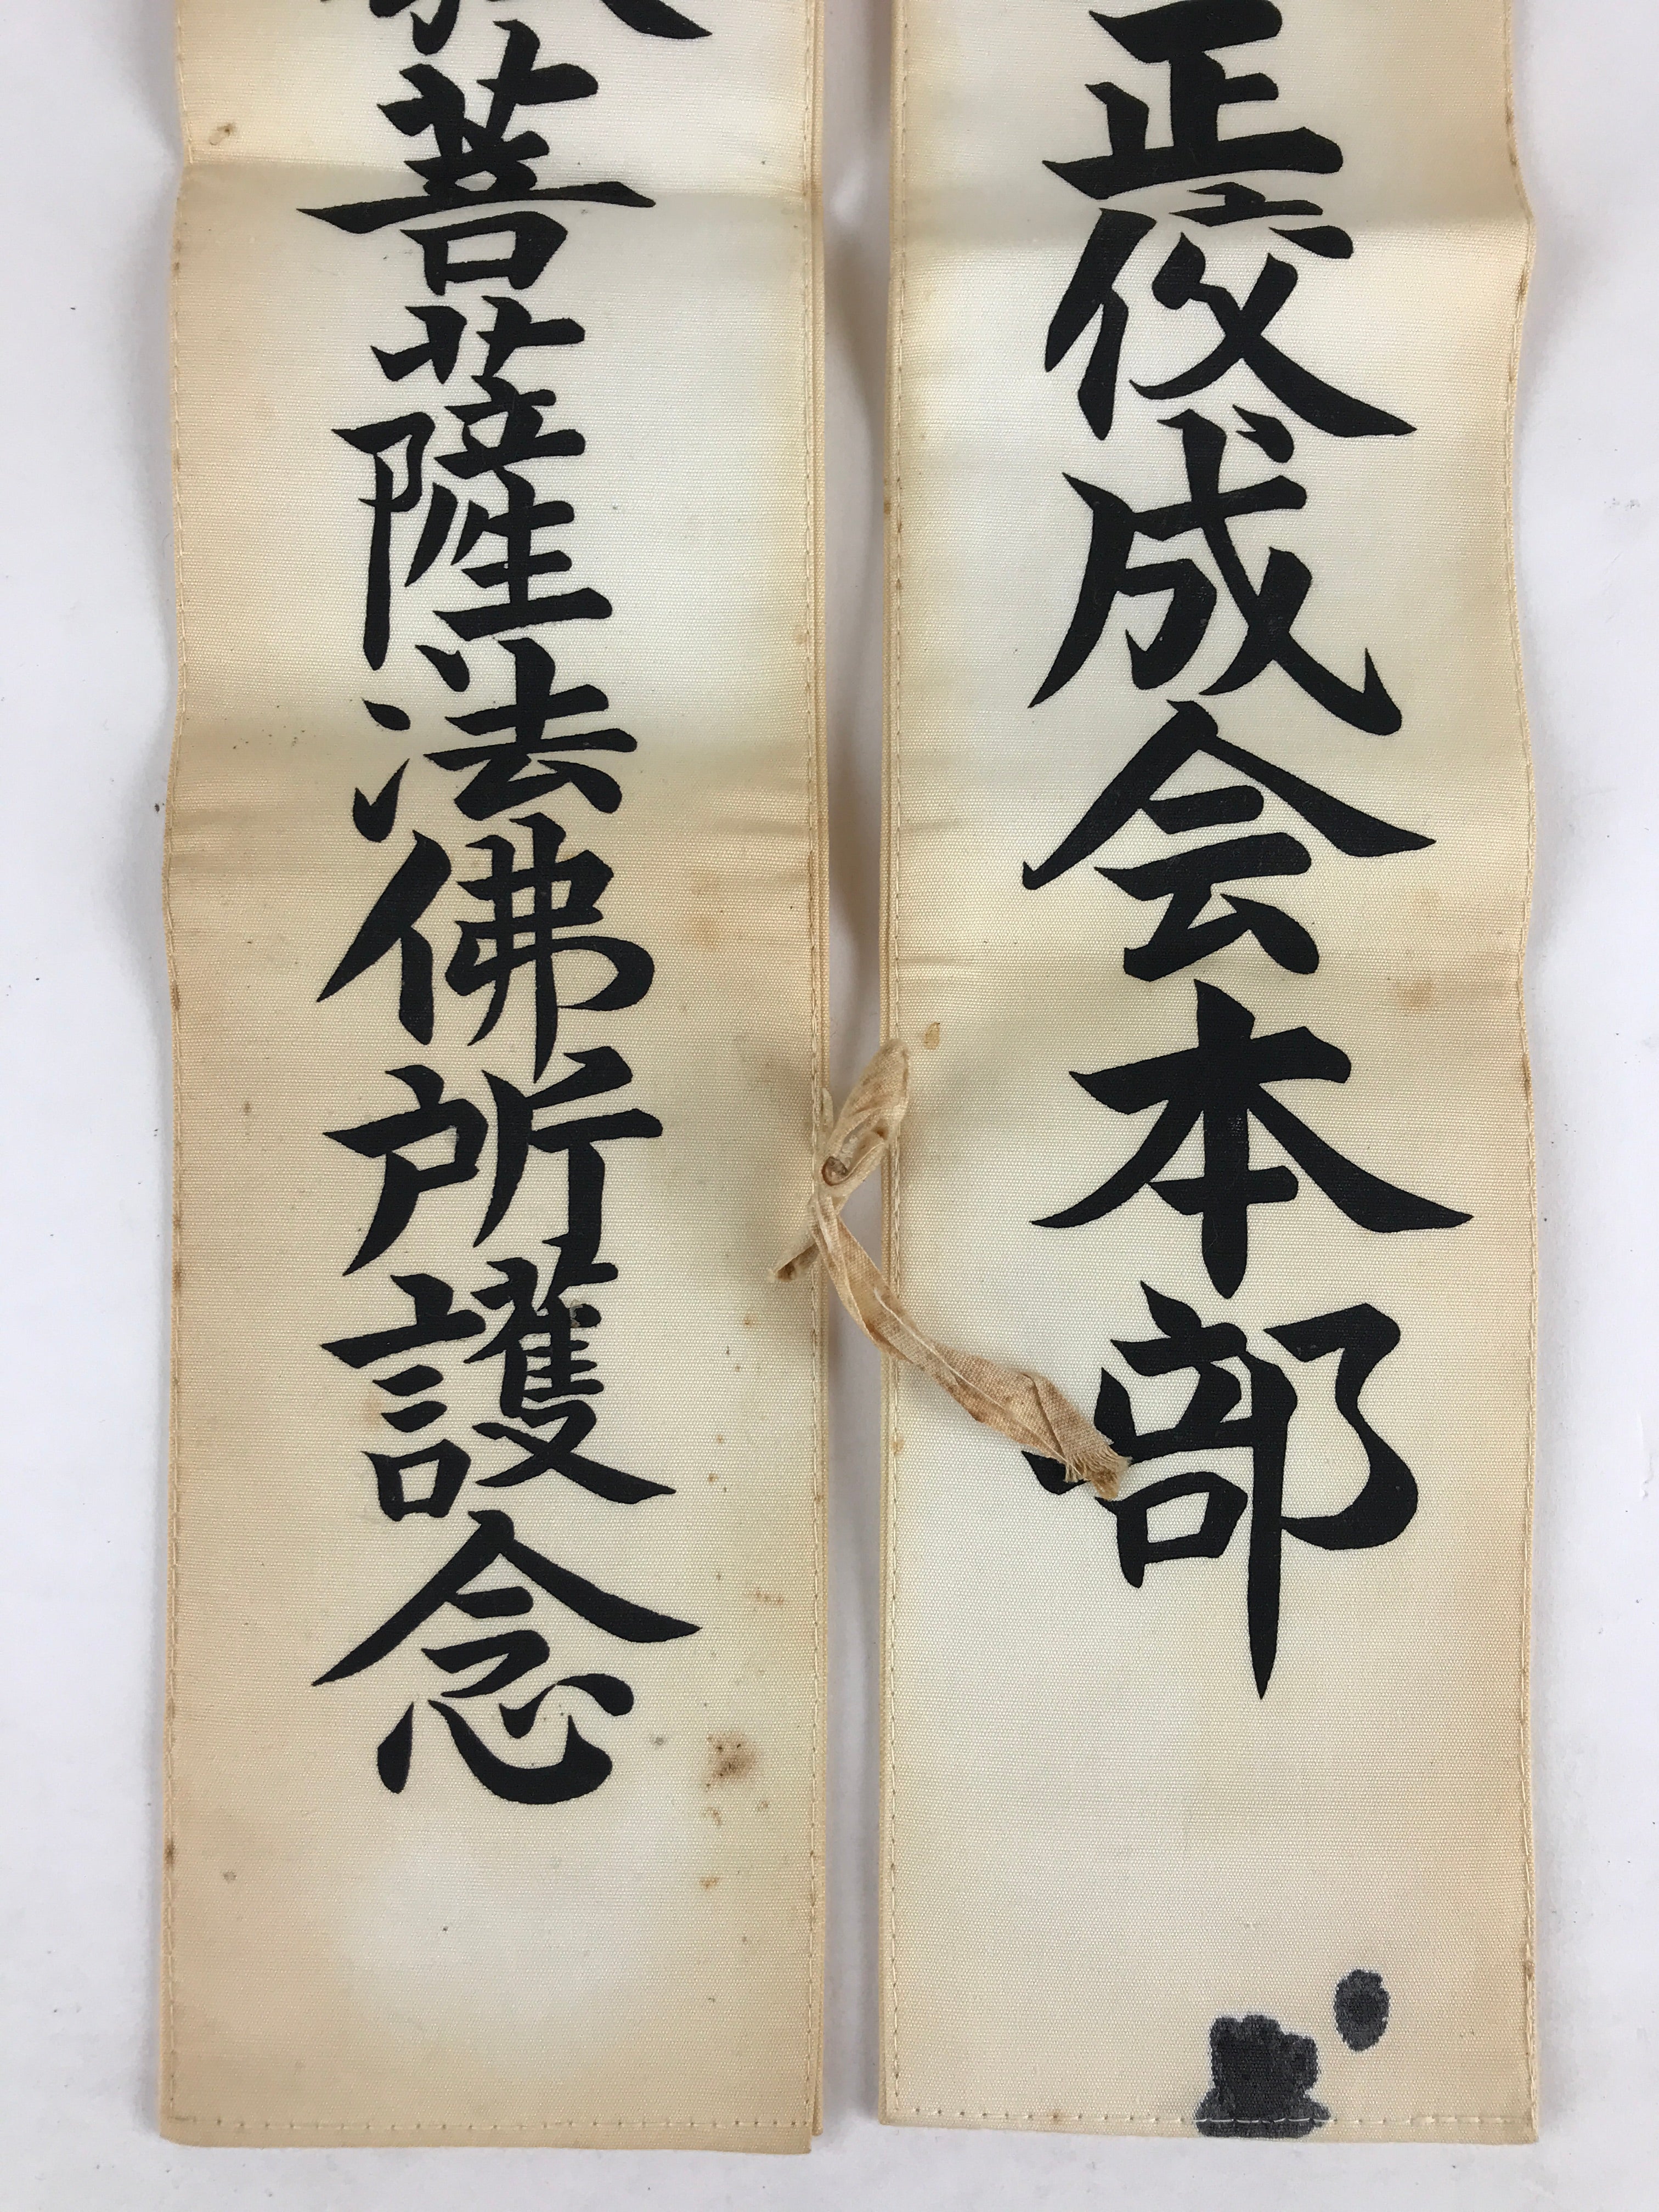 正佼成会本部
菩薩法佛所護念